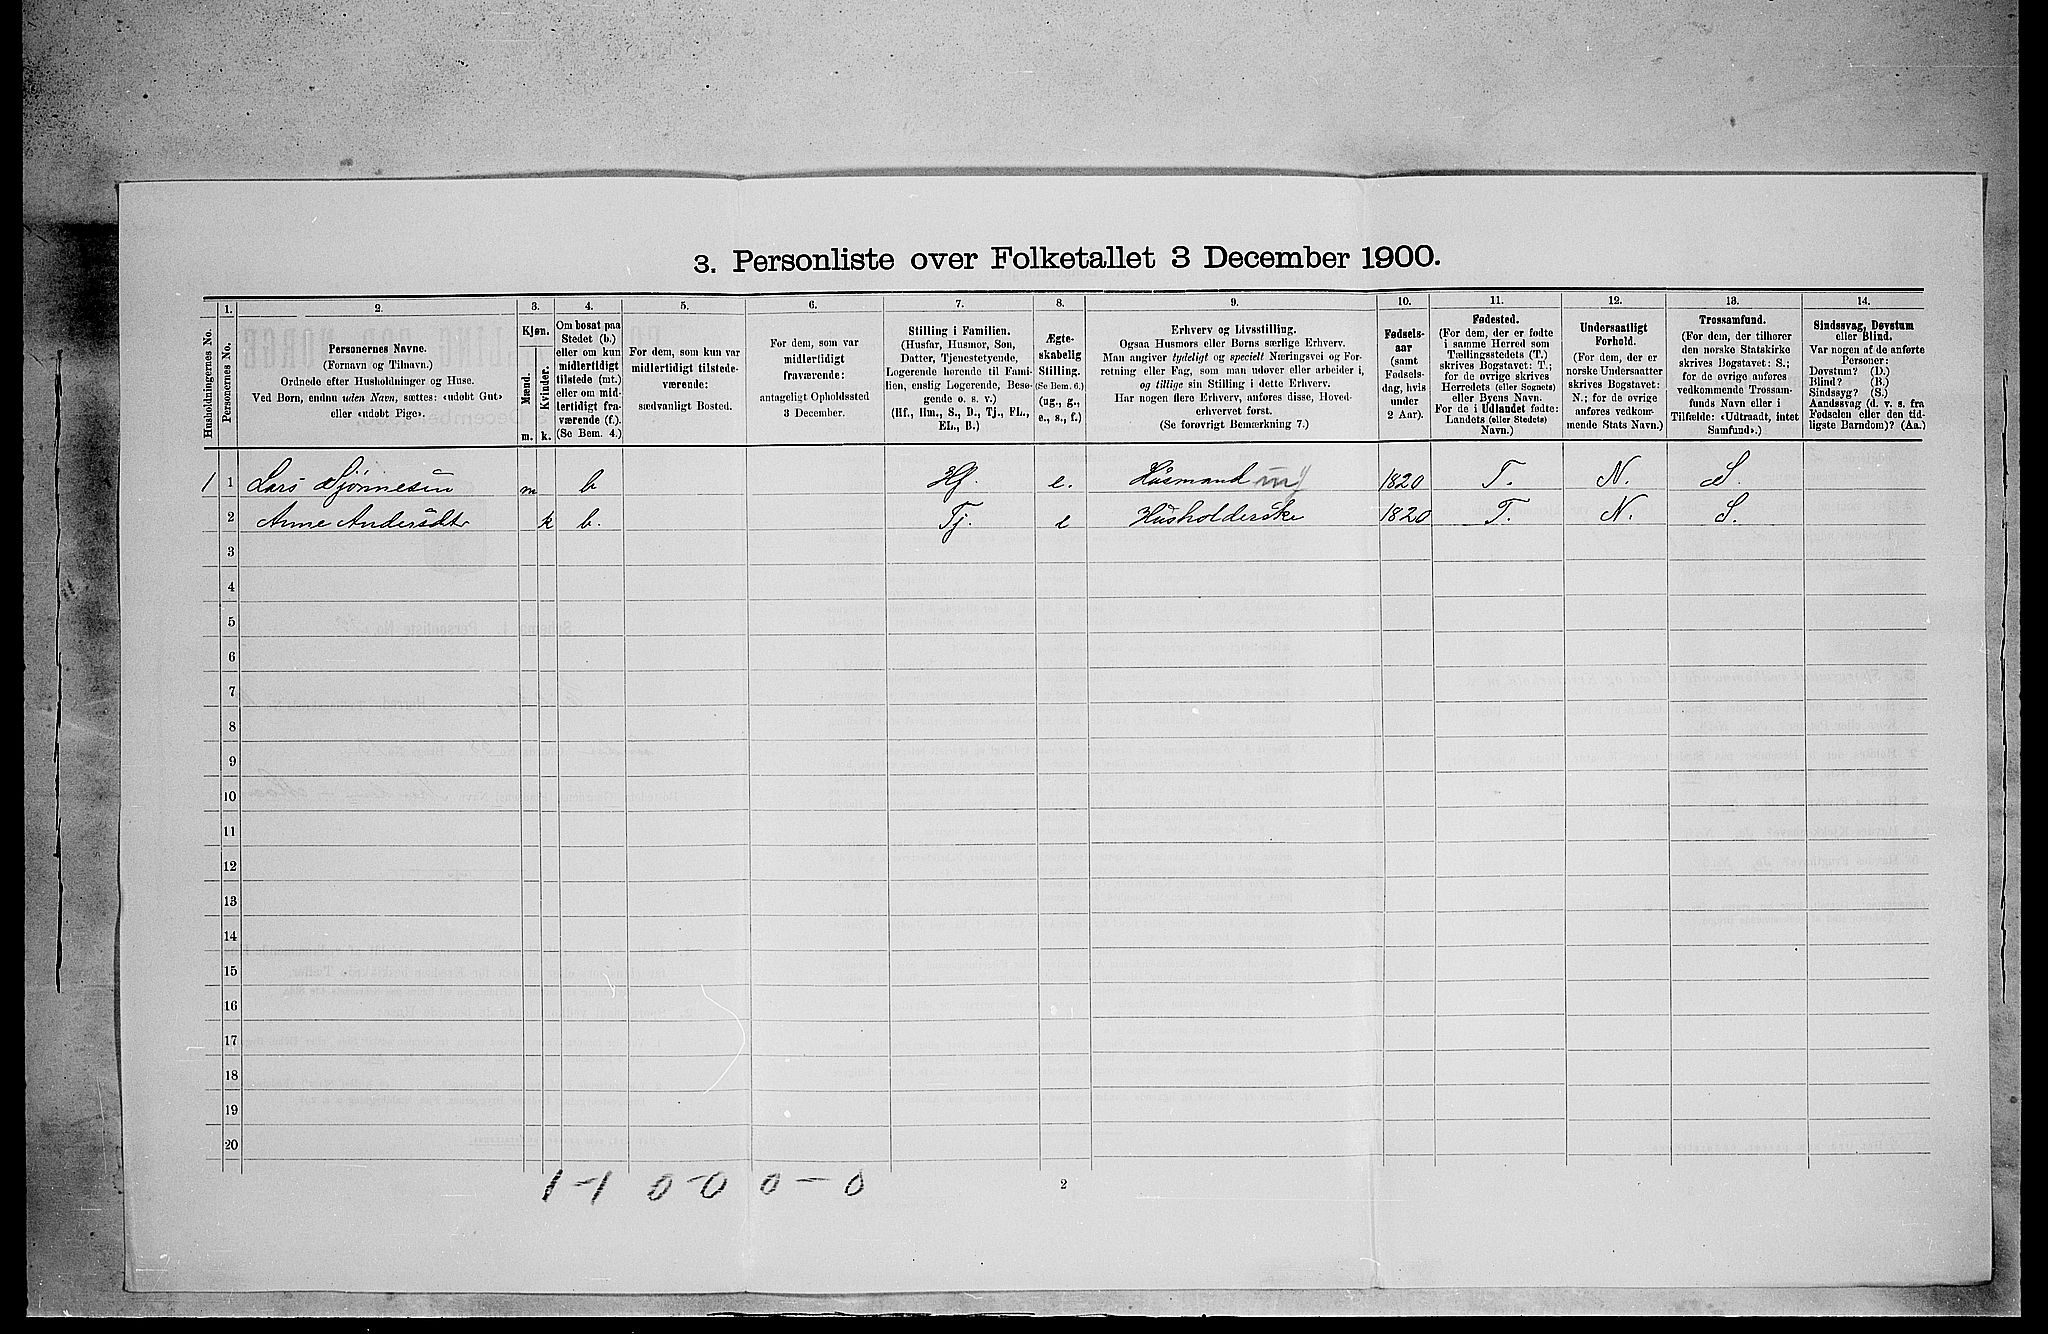 3. Personliste over Folketallet 3 December 1900.
1. 2. 3. 4. 5. 6. 7. 8. 9. 10. 11. 12. 13. 14.
Husholdningernes No.
Personernes No.
Personernes Navne.
(Fornavn og Tilnavn.)
Ordnede efter Husholdninger og Huse.
Ved Børn, endnu uden Navn, sættes: «udøbt Gut»
eller «udøbt Pige».
Kjøn.
Mænd.
Kvinder.
m. k.
Om bosat paa
Stedet (b.)
eller om kun
midlertidigt
tilstede (mt.)
eller om mid-
lertidigt fra-
værende (f.).
(Se Bem. 4.)
For dem, som kun var
midlertidigt tilstede-
værende:
sædvanligt Bosted.
For dem, som var
midlertidigt
fraværende:
antageligt Opholdssted
3 December.
Stilling i Familien.
(Husfar, Husmor, Søn,
Datter, Tjenestetyende,
Logerende hørende til Fami-
lien, enslig Logerende, Besø-
gende o. s. v.)
(Hf., Hm., S., D., Tj., FL.,
EL., B.)
Ægte-
skabelig
Stilling.
(Se Bem. 6.)
(ug., g.,
e., s., f.)
Erhverv og Livsstilling.
Ogsaa Husmors eller Børns særlige Erhverv.
Man angiver tydeligt og specielt Næringsvei og For-
retning eller Fag, som man udøver eller arbeider i,
og tillige sin Stilling i dette Erhverv.
Har nogen flere Erhverv, anføres disse, Hoved-
erhvervet først.
(Se forøvrigt Bemærkning 7.)
Fødsels-
aar
(samt
Fødsels-
dag, hvis
under
2 Aar).
Fødested.
(For dem, der er fødte
i samme Herred som
Tællingsstedets (T.)
skrives Bogstavet: T.;
for de øvrige skrives
Herredets (eller Sognets)
eller Byens Navn.
For de i Udlandet fødte:
Landets (eller Stedets)
Navn.)
Undersaatligt
Forhold.
(For dem, der er
norske Undersaatter
skrives Bogstavet:
N.; for de øvrige
anføres vedkom-
mende Stats Navn.)
Trossamfund.
(For dem, der tilhører
den norske Statskirke
skrives Bogstavet: S.;
for de øvrige anføres
vedkommende Trossam-
funds Navn eller i
Tilfælde: «Udtraadt, intet
Samfund».)
Sindssvag, Døvstum
eller Blind.
Var nogen af de anførte
Personer:
Døvstum? (D.)
Blind? (B.)
Sindssyg? (S.)
Aandssvag (d. v. s. fra
Fødselen eller den tid-
ligste Barndom)? (Aa.)
1 1 Lars m b Hf. e. Husmand 1820 T. N. S.
2 Anne Andersdtr k b. Tj. e Husholderske 1820 T. N. S.
3
4
5
6
7
8
9
10
11
12
13
14
15
16
17
18
19
20
1-1 0-0 0-0
2